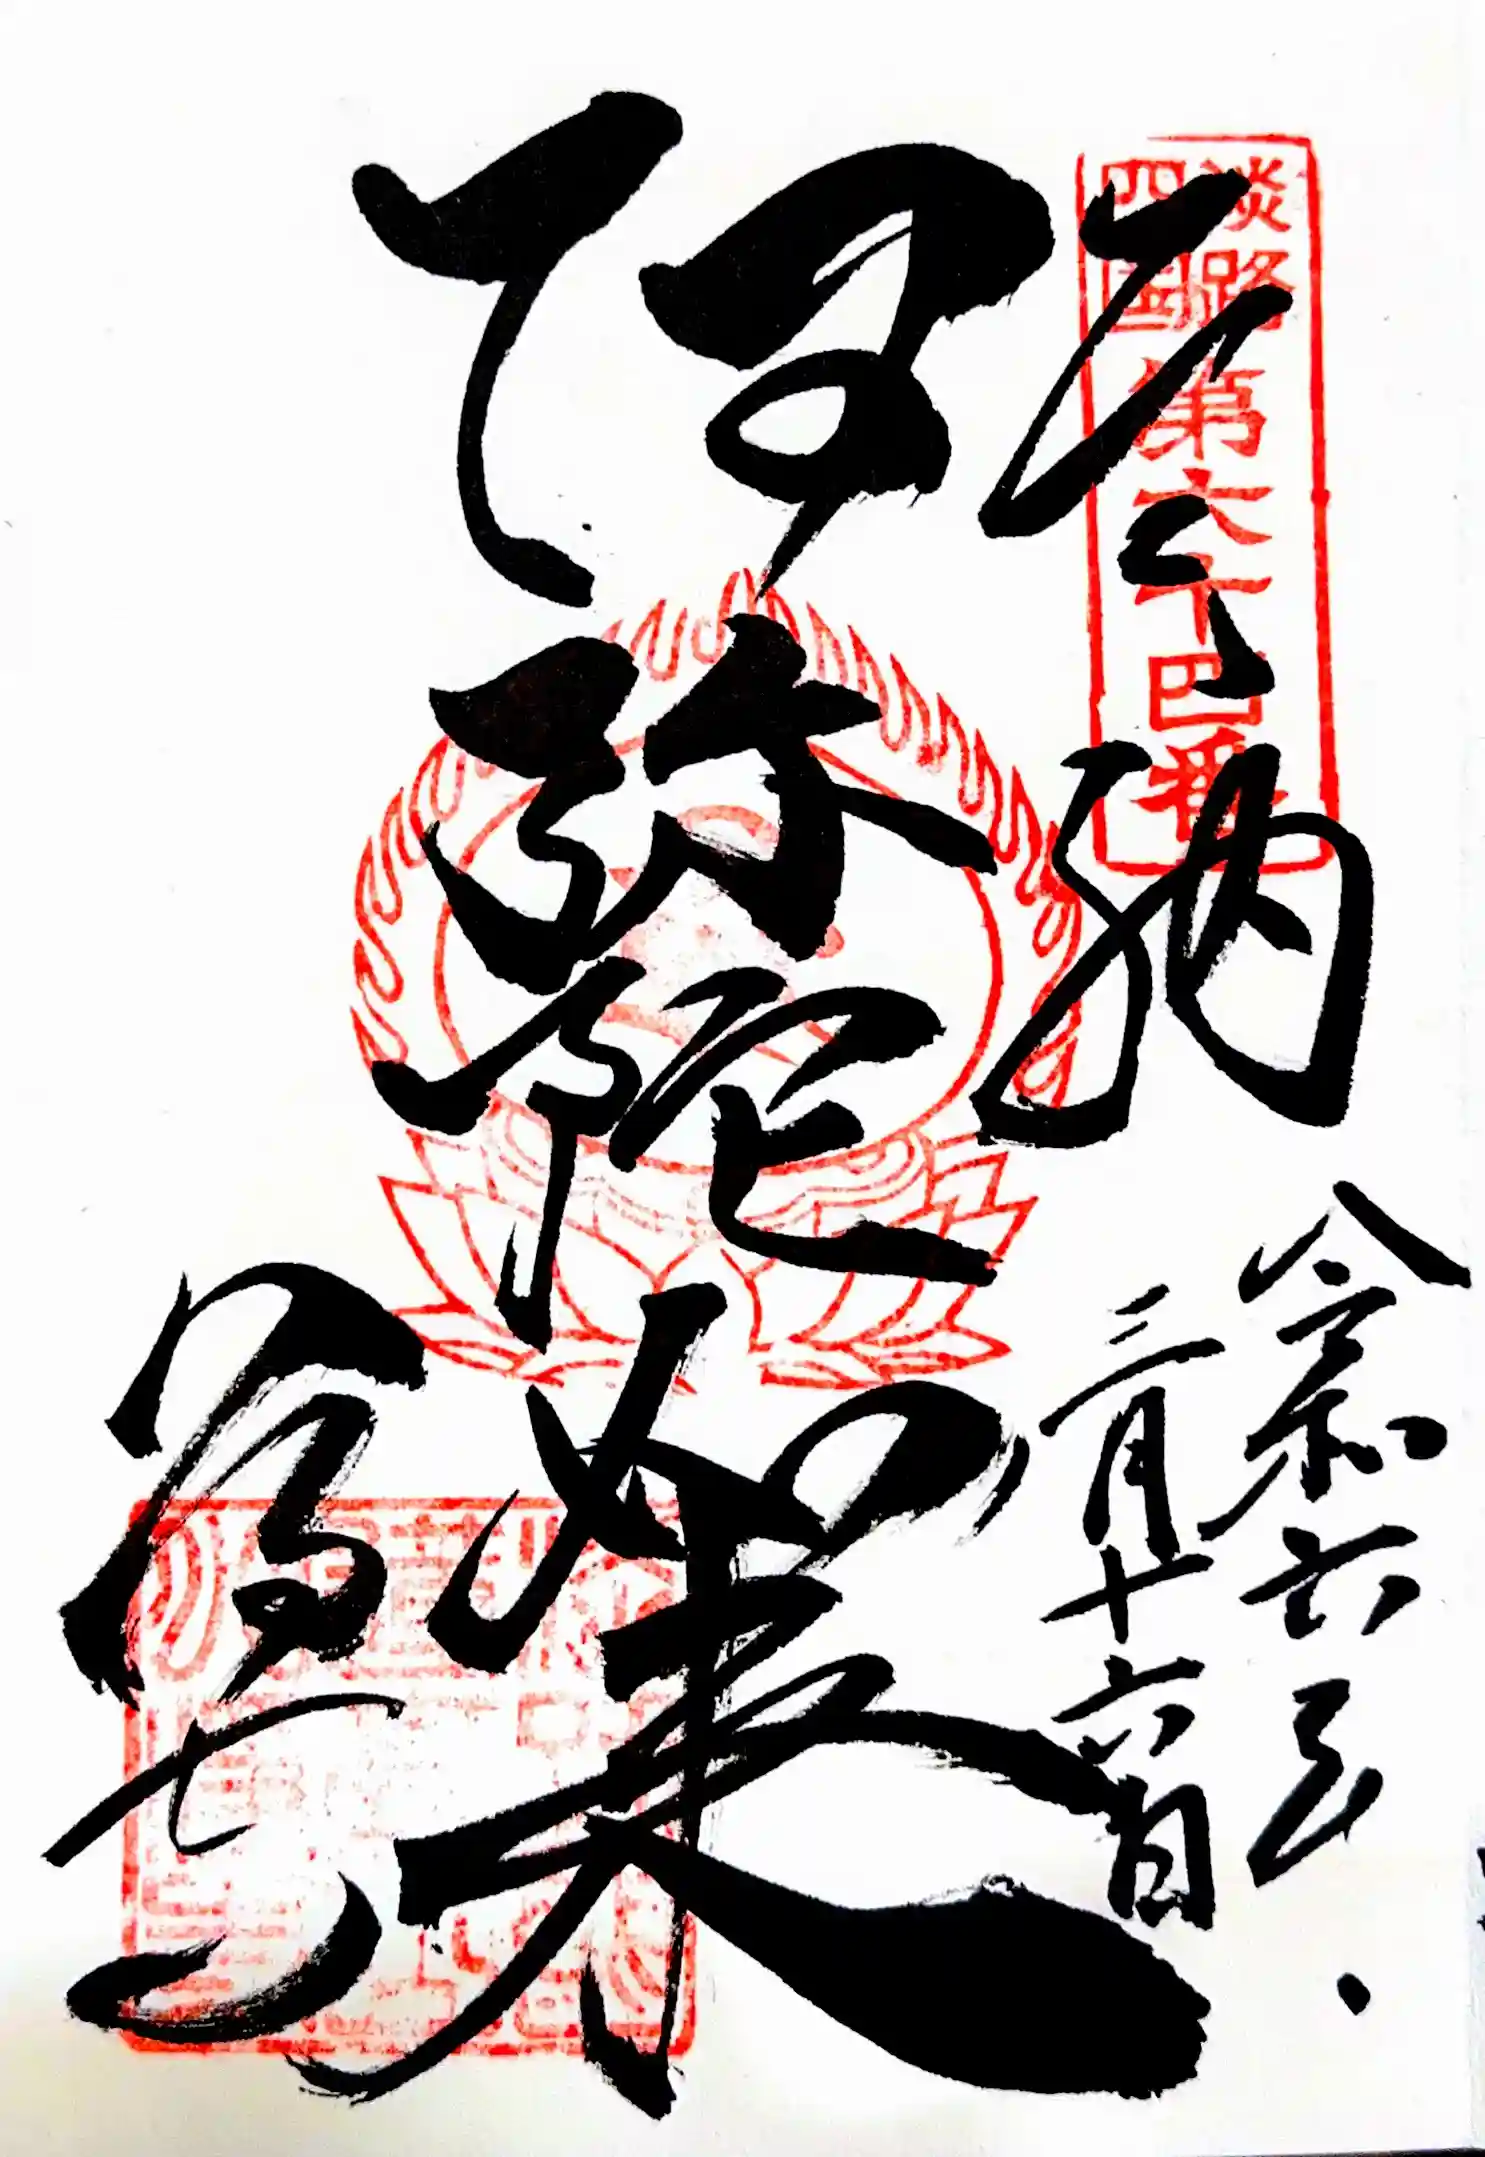 奉納
淡路
四国
第六十四番
令和六年
三月十六日
阿弥陀如来